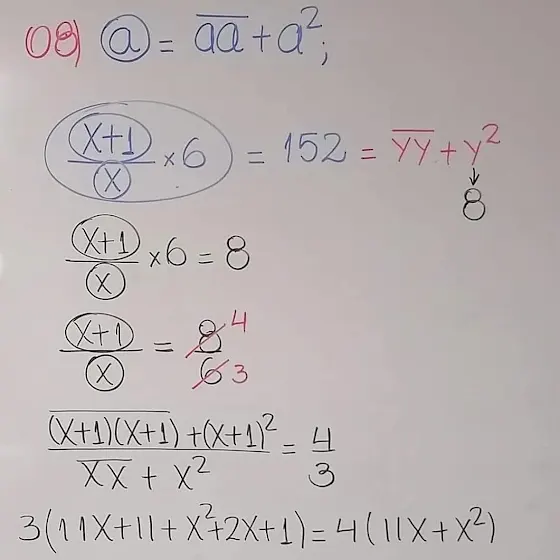 08) ⓐ = a̅a̅ + a²;
(x+1)/(x) × 6 = 152 = y̅y̅ + y²
↓
8
(x+1)/(x) × 6 = 8
(x+1)/(x) = 8/6 4/3
((x+1)(x+1) + (x+1)²)/(x̅x̅ + x²) = 4/3
3(11x+11+x²+2x+1) = 4(11x+x²)